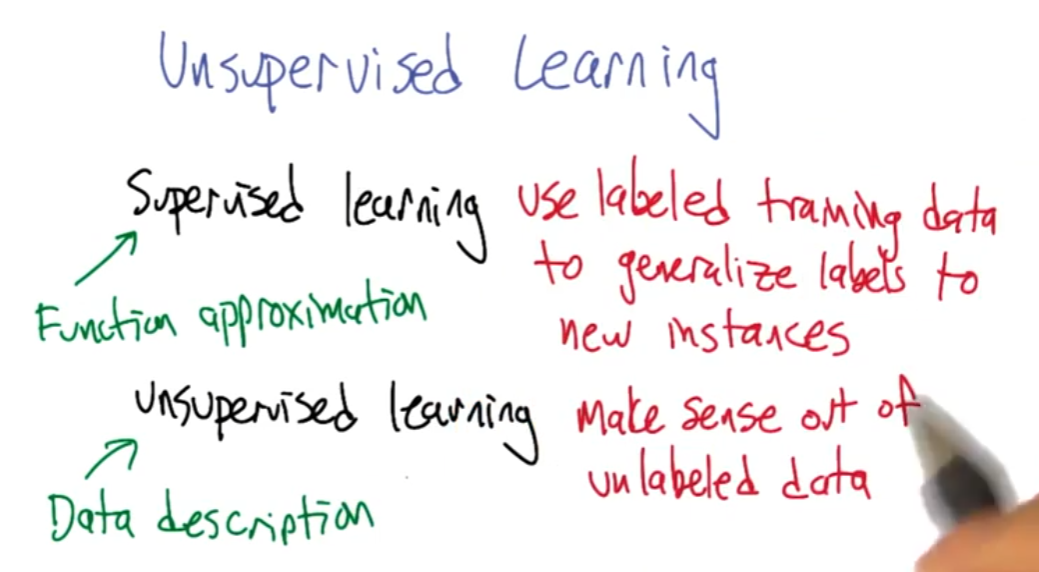 Unsupervised Learning
Supervised learning
use labeled training data
to generalize labels to
new instances
Function approximation
unsupervised learning
make sense out of
unlabeled data
Data description